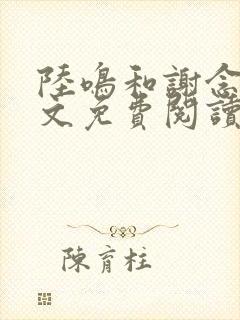 陸鳴和謝念
文免費閱讀
陳育柱